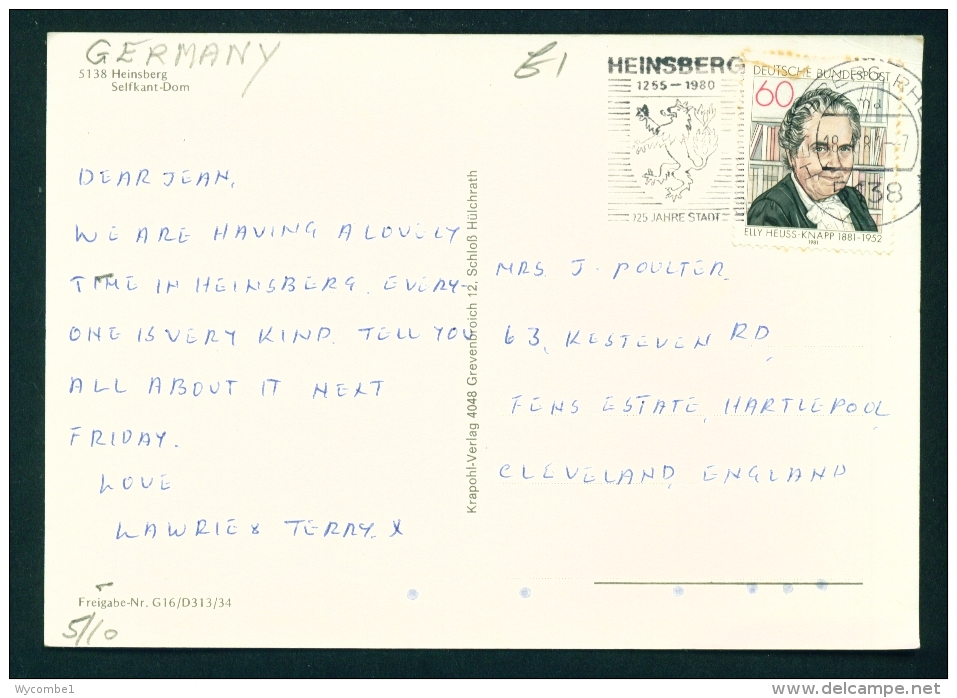 GERMANY
5138 Heinsberg
Selfkant-Dom
£1
HEINSBERG
1255-1980
725 JAHRE STADT
DEUTSCHE BUNDESPOST
60
ELLY HEUSS-KNAPP 1881-1952
1981
5138
DEAR JEAN,
WE ARE HAVING A LOVELY
TIME IN HEINSBERG. EVERY-
ONE IS VERY KIND. TELL YOU
ALL ABOUT IT NEXT
FRIDAY.
LOVE
LAWRIE & TERRY. X
Krapohl-Verlag 4048 Grevenbroich 12, Schloß Hülchrath
MRS. J. POULTER.
63, KESTEVEN RD,
FENS ESTATE, HARTLEPOOL
CLEVELAND, ENGLAND
Freigabe-Nr. G16/D313/34
5/10
Wycombe1
www.delcampe.net